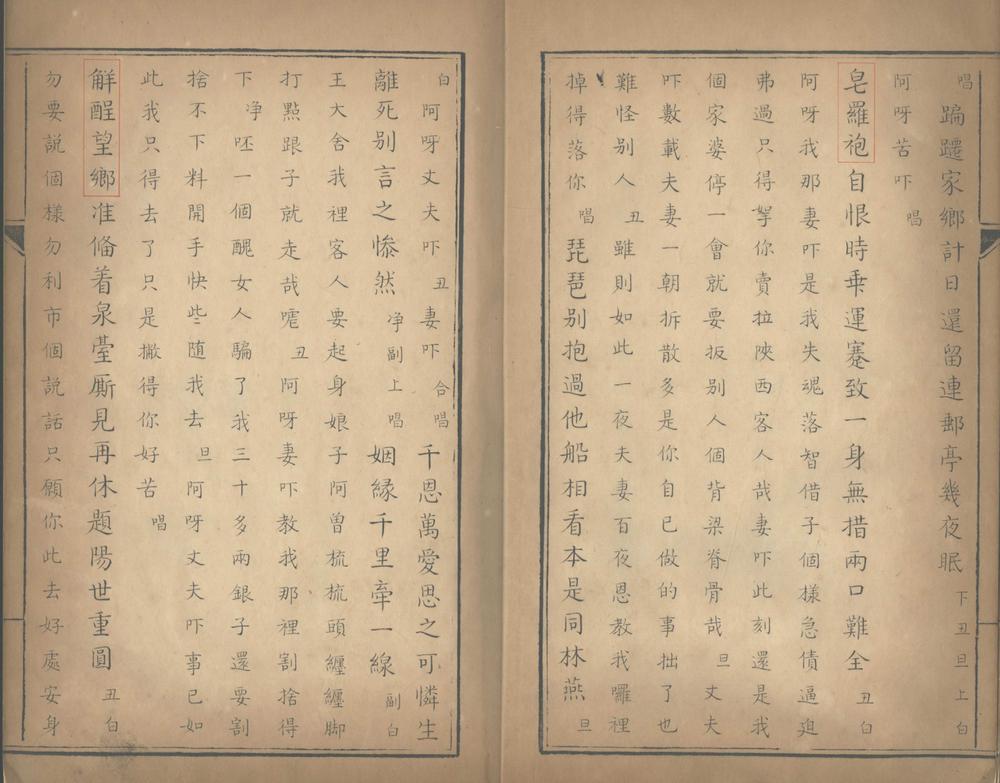 唱蹁躚家鄉計日還留連郵亭幾夜眠下丑旦上白
阿呀苦吓唱
皂羅袍自恨時乖運蹇致一身無措兩口難全丑白
阿呀我那妻吓是我失魂落智借子個樣急債逼廹
弗過只得拏你賣拉陝西客人哉妻吓此刻還是我
個家婆停一會就要扳别人個背梁脊骨哉旦丈夫
吓數載夫妻一朝拆散多是你自已做的事拙了也
難怪别人丑雖則如此一夜夫妻百夜恩教我囉裡
掉得落你唱琵琶别抱過他船相看本是同林燕旦
白阿呀丈夫吓丑妻吓合唱千恩萬愛思之可憐生
離死别言之惨然净副上唱姻緣千里牽一線副白
王大舍我裡客人要起身娘子阿曾梳梳頭纏纏脚
打點跟子就走哉嘘丑阿呀妻吓教我那裡割捨得
下净呸一個醜女人騙了我三十多兩銀子還要割
捨不下料開手快些随我去旦阿呀丈夫吓事已如
此我只得去了只是撇得你好苦唱
解酲望鄉准俻着泉臺厮見再休題陽世重圓丑白
勿要説個樣勿利市個説話只願你此去好處安身